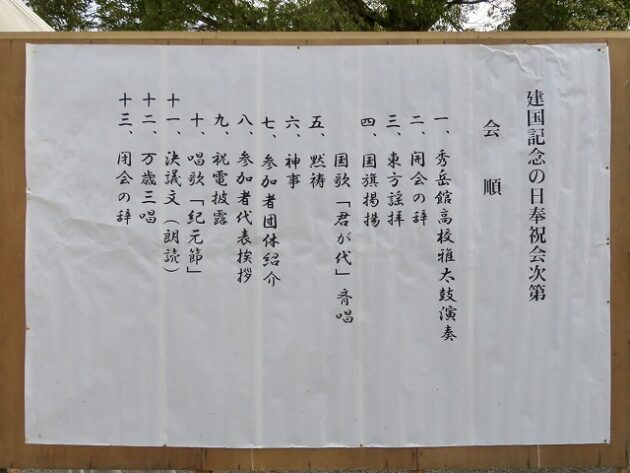 建国記念の日奉祝会次第
会順
一、秀岳館高校雅太鼓演奏
二、開会の辞
三、東方謡拝
四、国旗掲揚
国歌「君が代」斉唱
五、黙祷
六、神事
七、参加者団体紹介
八、参加者代表挨拶
九、祝電披露
十、唱歌「紀元節」
十一、決議文(朗読)
十二、万歳三唱
十三、閉会の辞